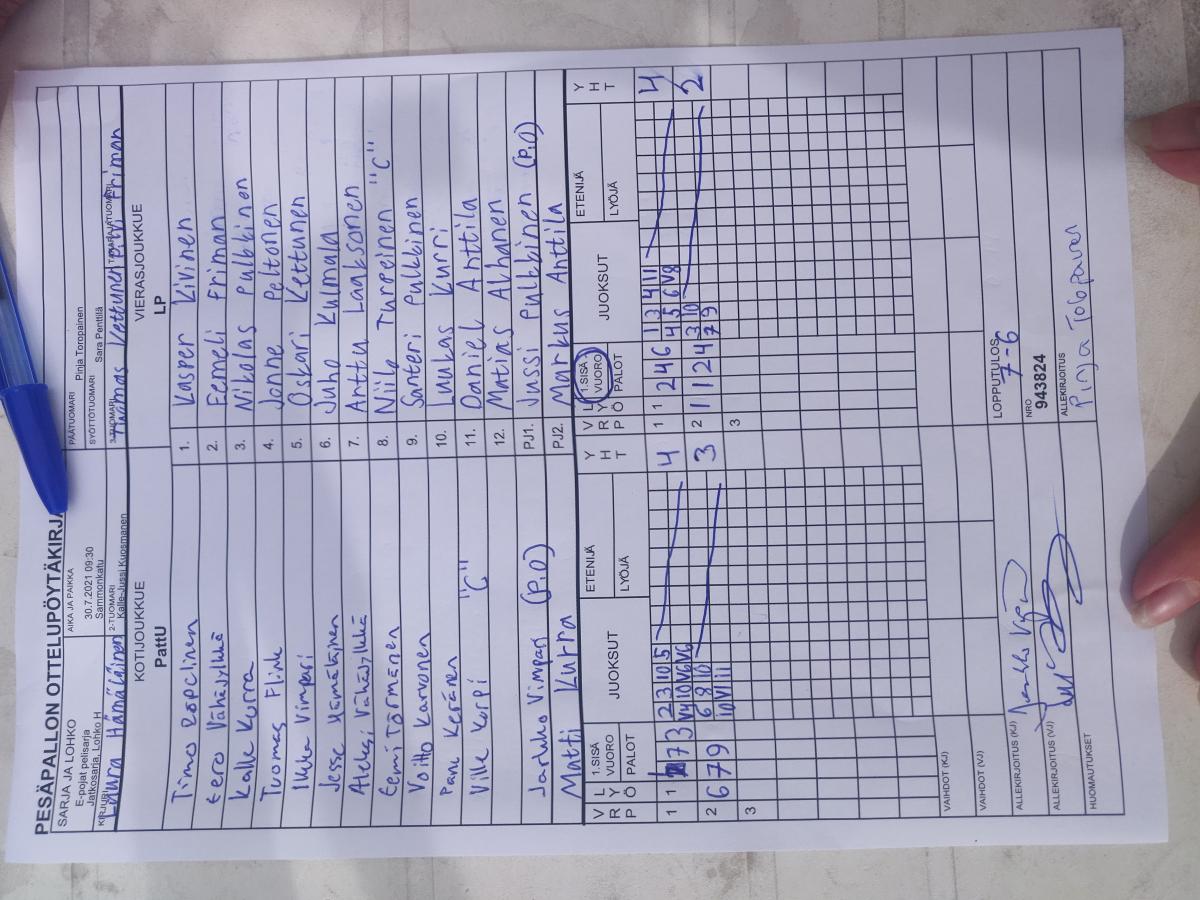 PESÄPALLON OTTELUPÖYTÄKIRJA
SARJA JA LOHKO
E-pojat pelisarja
Jatkosarja, Lohko H
AIKA JA PAIKKA
30.7.2021 09:30
Sammonkatu
PÄÄTUOMARI
Pinja Toropainen
SYÖTTÖTUOMARI
Sara Penttilä
KIRJURI
Laura Hämäläinen
2-TUOMARI
Kalle-Jussi Kuosmanen
3-TUOMARI
Tuomas Kettunen
TAKARAJATUOMARI
Friman
KOTIJOUKKUE
PattU
VIERASJOUKKUE
LP
Timo Roppelinen 1. Kasper Kivinen
Eero Vähäsylkkä 2. Eemeli Friman
Kalle Kurra 3. Nikolas Pulkkinen
Tuomas Flink 4. Jonne Peltonen
Iikka Vimpari 5. Oskari Kettunen
Jesse Hämäläinen 6. Juho Kulmala
Aleksi Vähäsylkkä 7. Anttu Laaksonen
Eemi Törmänen 8. Niilo Tureinen "C"
Voitto Karvonen 9. Santeri Pulkkinen
Panu Keränen 10. Luukas Kurri
Ville Korpi "C" 11. Daniel Anttila
12. Matias Alhanen
Jarkko Vimpari (P.O) PJ1. Jussi Pulkkinen (P.O)
Matti Kurra PJ2. Markus Anttila
V R P L Y Ö 1.SISÄ VUORO PALOT JUOKSUT ETENIJÄ LYÖJÄ Y H T V R P L Y Ö 1.SISÄ VUORO PALOT JUOKSUT ETENIJÄ LYÖJÄ Y H T
1 1 7 3 2 3 10 5 4 1 1 2 4 6 1 3 4 11 4
V4 10 V6 V6 4 5 6 V8
2 6 7 9 6 8 10 3 2 1 1 2 4 3 10 2
10 V1 11 7 9
3 3
VAIHDOT (KJ)
VAIHDOT (VJ)
LOPPUTULOS
7-6
ALLEKIRJOITUS (KJ)
Jarkko Vimpari
NRO
943824
ALLEKIRJOITUS (VJ)
ALLEKIRJOITUS
Pinja Toropainen
HUOMAUTUKSET